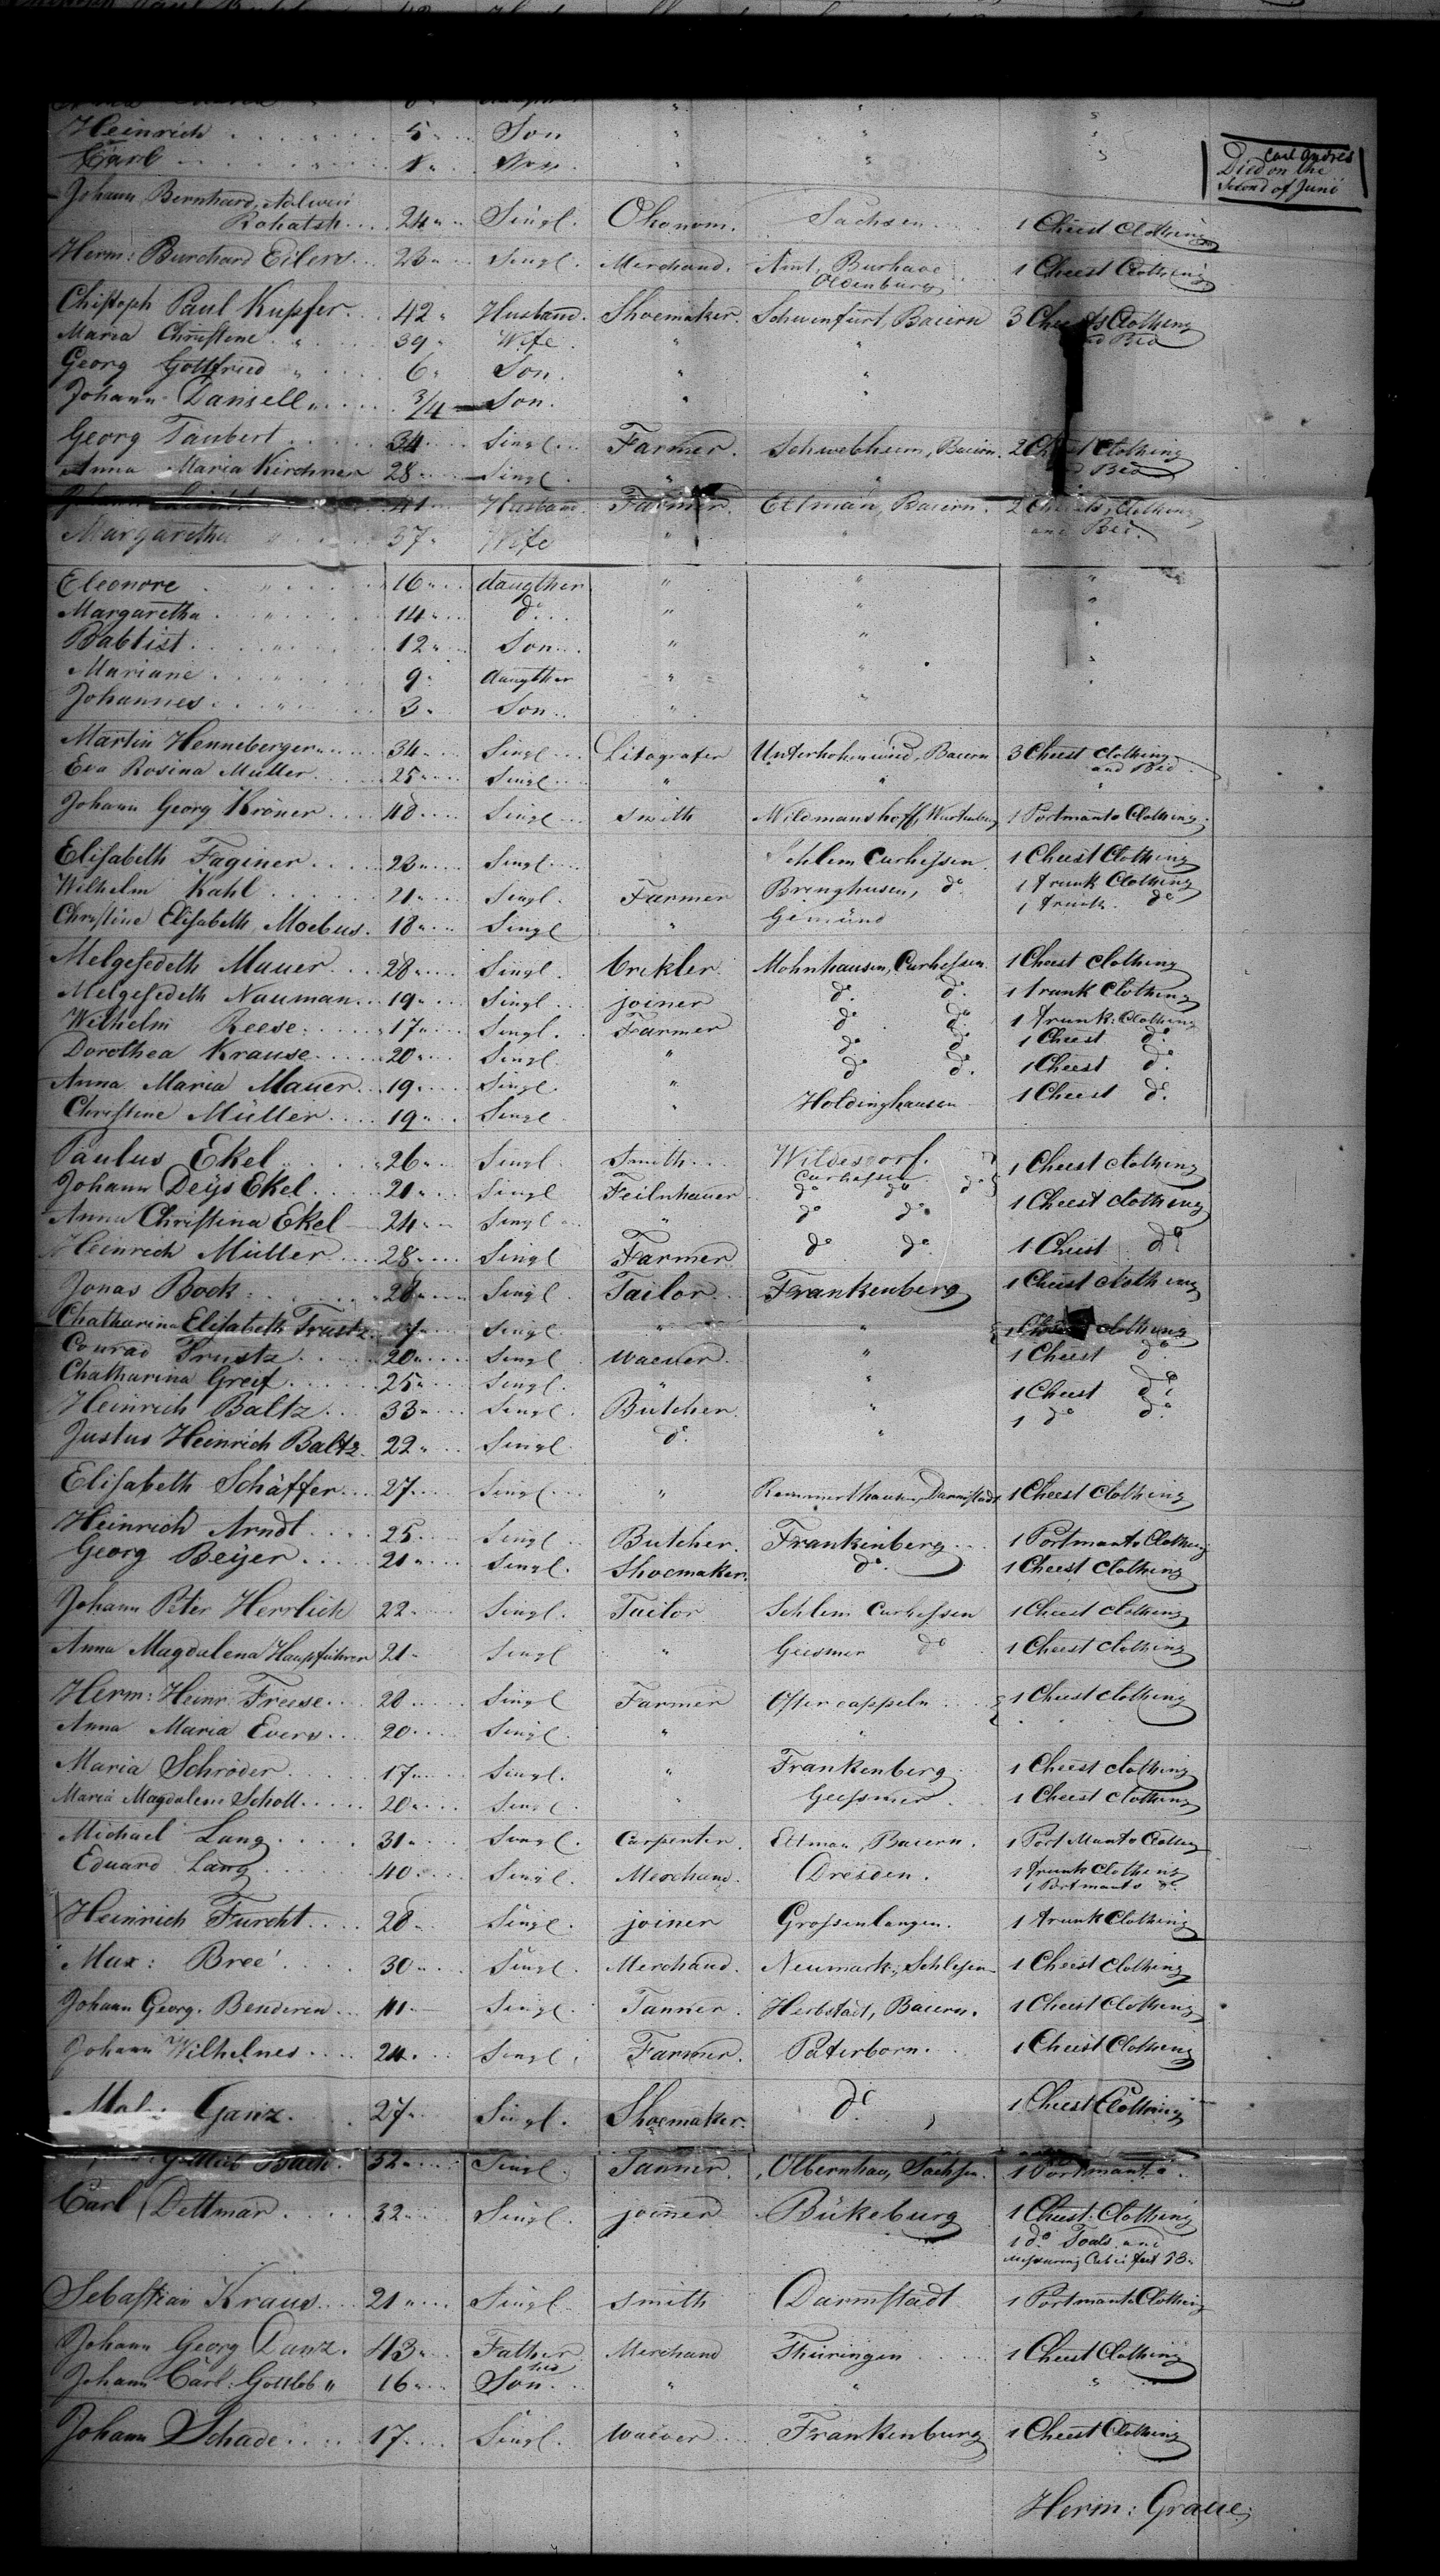 Heinrich 5 Son " " "
Carl 1 Son " " "
Carl Andres
Died on the
Second of June
Johann Bernhard
Rohatsh 24 Singl. Okonom. Sachsen 1 Cheest Clothing
Herm: Burchard Eilers 23 Singl. Merchand. Amt, Burhave 1 Cheest Clothing
Oldenburg
Chistoph Paul Kupfer 42 Husband. Shoemaker. Schwenfurt, Baiern 3 Cheests Clothing
Maria Christine " 39 Wife " " Bed
Georg Gottfried " 6 Son. " "
Johann Daniell " 3/4 Son. " "
Georg Taubert 34 Singl. Farmer. Schwebheim, Baiern. 2 Cheest Clothing
Anna Maria Kirchner 28 Singl. " " Bed
41 Husband Farmer. Eltman, Baiern. 2 Cheests, Clothing
Margaretha " 37 Wife " " and Bed.
Eleonore " 16 daugther " " "
Margaretha " 14 do " " "
Babtist " 12 Son " " "
Mariane " 9 daugther " " "
Johannes " 3 Son " "
Martin Henneberger 34 Singl Litografer Unterhohenwind, Baiern 3 Cheest Clothing
Eva Rosina Muller 25 Singl " " and Bed
Johann Georg Kröner 48 Singl smith Wildmanshoff, Wurtenberg 1 Portmanto Clothing.
Elisabeth Faginer 23 Singl Sehlem Curhessen. 1 Cheest Clothing
Wilhelm Kahl 21 Singl. Farmer Bringhusen, do 1 trunk Clothing
Christine Elisabeth Moebus. 18 Singl " Gemünd 1 trunk do
Melgesedeth Mauer 28 Singl. Mohnhausen, Curhessen. 1 Cheest Clothing
Melgesedeth Nauman 19 Singl joiner do. do. 1 trunk Clothing
Wilhelm Reese 17 Singl. Farmer do do 1 trunk: Clothing
Dorothea Krause 20 Singl. " do do 1 Cheest do
Anna Maria Mauer 19 Singl. " do do. 1 Cheest do.
Christine Müller 19 Singl " Holdinghausen 1 Cheest do.
Paulus Ekel 26 Singl. Smith Wildesdorf. 1 Cheest clothing
Curhessen
Johann Deijs Ekel 21 Singl Feilnhauer do do do 1 Cheest clothing
Anna Christina Ekel 24 Singl " do do
Heinrich Müller 28 Singl Farmer do do. 1 Cheest do
Jonas Bock 28 Singl. Tailor Frankenberg 1 Cheest clothing
Chatharina Elisabeth Trustz Singl. " " 1 Cheest clothing
Conrad Trustz 20 Singl waever " 1 Cheest do.
Chatharina Greif 25 Singl. " " 1 Cheest do
Heinrich Baltz 33 Singl. Butcher. " 1 do do.
Justus Heinrich Baltz 22 Singl. do. "
Elisabeth Schäffer 27 Singl. " Rommerthausen, Darmstadt 1 Cheest Clothing
Heinrich Arndt 25 Singl Butcher. Frankenberg 1 Portmanto Clothing
Georg Beijer 21 Singl. Shoemaker. do. 1 Cheest Clothing
Johann Peter Herrlich 22 Singl. Tailor Sehlem Curhessen 1 Cheest Clothing
Anna Magdalena Haupführer 21 Singl " Geismer do 1 Cheest Clothing
Herm: Heinr Freese 28 Singl Farmer Ostercappeln 1 Cheest clothing
Anna Maria Evers 20 Singl. " "
Maria Schröder 17 Singl. " Frankenberg 1 Cheest clothing
Maria Magdalene Scholl 20 Singl. " Geessmer 1 Cheest Clothing
Michael Lang 31 Singl. Carpenter. Eltman, Baiern. 1 Port Manto Clothing
Eduard Lang 40 Singl. Merchand. Dresden. 1 trunk Clothing
1 Portmanto do.
Heinrich Furcht 28 Singl. joiner Grossenlangen. 1 trunk Clothing
Max: Bree' 30 Singl. Merchand. Neumark, Schlesien 1 Cheest Clothing
Johann Georg. Benderen 41 Singl. Tanner. Herbstadt, Baiern. 1 Cheest Clothing
Johann Wilhelmes 24 Singl. Farmer. Paterborn. 1 Cheest Clothing
Ganz. 27 Singl. Shoemaker. do 1 Cheest Clothing
Gottlieb 32 Singl. Tanner. Olbernhau, Sachsen. 1 Portmanto.
Carl Dettmar 32 Singl. joiner Bükeburg 1 Cheest. Clothing
1 do Toals and
Messuring Cubic feet
Sebastian Kraus 21 Singl. smith Darmstadt 1 Portmanto Clothing
Johann Georg Danz. 43 Father Merchand Thüringen 1 Cheest Clothing
Johann Carl: Gottlob " 16 his Son. " " "
Johann Schade 17 Singl. waever Frankenburg 1 Cheest Clothing
Herm: Graue;